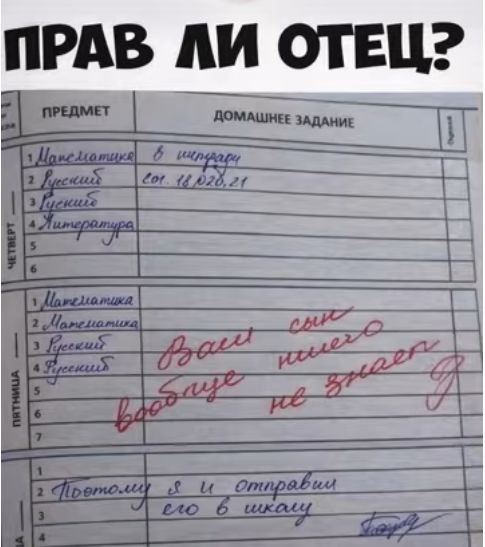 ПРАВ ЛИ ОТЕЦ?
ПРЕДМЕТ ДОМАШНЕЕ ЗАДАНИЕ
ЧЕТВЕРГ
1 Математика в тетради
2 Русский
3 Русский
4 Литература
5
6
ПЯТНИЦА
1 Математика
2 Математика
3 Русский
4 Русский
5
6
7
Ваш сын
вообще ничего
не знает
1
2 Поэтому я и отправил
3 его в школу
4